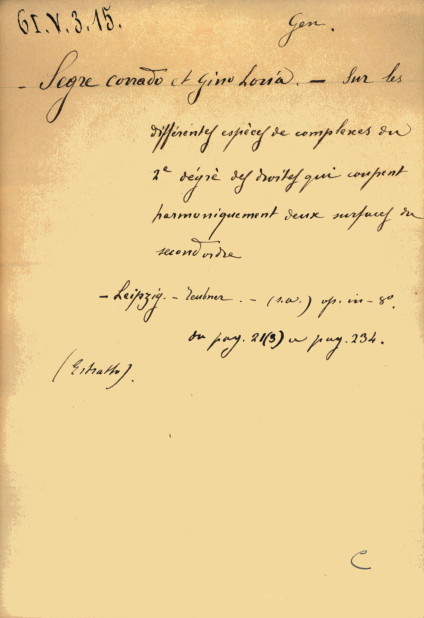 61.V.3.15.
Gen.
- Segre Corrado et Gino Loria. - Sur les
différentes espèces de complexes du
2e dégrè des droites qui coupent
harmoniquement deux surfaces du
second ordre
- Leipzig. - Teubner. - (s.a.) op. in - 8o.
da pag. 21(3) a pag. 234.
(Estratto).
C